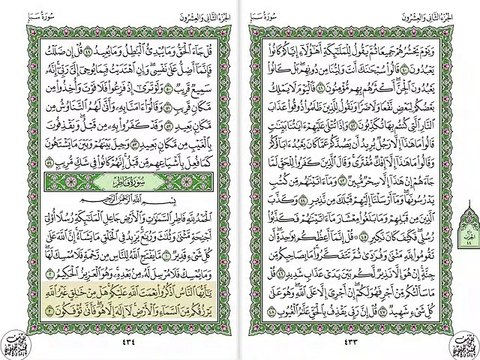 الجزء الثاني والعشرون
سورة سبإ
وَيَوْمَ يَحْشُرُهُمْ جَمِيعًا ثُمَّ يَقُولُ لِلْمَلَٰٓئِكَةِ أَهَٰٓؤُلَآءِ إِيَّاكُمْ كَانُوا۟
يَعْبُدُونَ ٤٠ قَالُوا۟ سُبْحَٰنَكَ أَنتَ وَلِيُّنَا مِن دُونِهِم بَلْ كَانُوا۟
يَعْبُدُونَ ٱلْجِنَّ أَكْثَرُهُم بِهِم مُّؤْمِنُونَ ٤١ فَٱلْيَوْمَ لَا يَمْلِكُ
بَعْضُكُمْ لِبَعْضٍ نَّفْعًا وَلَا ضَرًّا وَنَقُولُ لِلَّذِينَ ظَلَمُوا۟ ذُوقُوا۟ عَذَابَ
ٱلنَّارِ ٱلَّتِى كُنتُم بِهَا تُكَذِّبُونَ ٤٢ وَإِذَا تُتْلَىٰ عَلَيْهِمْ ءَايَٰتُنَا بَيِّنَٰتٍ
قَالُوا۟ مَا هَٰذَآ إِلَّا رَجُلٌ يُرِيدُ أَن يَصُدَّكُمْ عَمَّا كَانَ يَعْبُدُ ءَابَآؤُكُمْ
وَقَالُوا۟ مَا هَٰذَآ إِلَّآ إِفْكٌ مُّفْتَرًى وَقَالَ ٱلَّذِينَ كَفَرُوا۟ لِلْحَقِّ لَمَّا
جَآءَهُمْ إِنْ هَٰذَآ إِلَّا سِحْرٌ مُّبِينٌ ٤٣ وَمَآ ءَاتَيْنَٰهُم مِّن كُتُبٍ
يَدْرُسُونَهَا وَمَآ أَرْسَلْنَآ إِلَيْهِمْ قَبْلَكَ مِن نَّذِيرٍ ٤٤ وَكَذَّبَ ٱلَّذِينَ
مِن قَبْلِهِمْ وَمَا بَلَغُوا۟ مِعْشَارَ مَآ ءَاتَيْنَٰهُمْ فَكَذَّبُوا۟
رُسُلِى فَكَيْفَ كَانَ نَكِيرِ ٤٥ قُلْ إِنَّمَآ أَعِظُكُم بِوَٰحِدَةٍ أَن
تَقُومُوا۟ لِلَّهِ مَثْنَىٰ وَفُرَٰدَىٰ ثُمَّ تَتَفَكَّرُوا۟ مَا بِصَاحِبِكُم مِّن
جِنَّةٍ إِنْ هُوَ إِلَّا نَذِيرٌ لَّكُم بَيْنَ يَدَىْ عَذَابٍ شَدِيدٍ ٤٦ قُلْ
مَا سَأَلْتُكُم مِّنْ أَجْرٍ فَهُوَ لَكُمْ إِنْ أَجْرِىَ إِلَّا عَلَى ٱللَّهِ وَهُوَ عَلَىٰ
كُلِّ شَىْءٍ شَهِيدٌ ٤٧ قُلْ إِنَّ رَبِّى يَقْذِفُ بِٱلْحَقِّ عَلَّٰمُ ٱلْغُيُوبِ ٤٨
٤٣٣
الجزء الثاني والعشرون
سورة سبإ
قُلْ جَآءَ ٱلْحَقُّ وَمَا يُبْدِئُ ٱلْبَٰطِلُ وَمَا يُعِيدُ ٤٩ قُلْ إِن ضَلَلْتُ
فَإِنَّمَآ أَضِلُّ عَلَىٰ نَفْسِى وَإِنِ ٱهْتَدَيْتُ فَبِمَا يُوحِىٓ إِلَىَّ رَبِّىٓ إِنَّهُۥ
سَمِيعٌ قَرِيبٌ ٥٠ وَلَوْ تَرَىٰٓ إِذْ فَزِعُوا۟ فَلَا فَوْتَ وَأُخِذُوا۟ مِن
مَّكَانٍ قَرِيبٍ ٥١ وَقَالُوٓا۟ ءَامَنَّا بِهِۦ وَأَنَّىٰ لَهُمُ ٱلتَّنَاوُشُ مِن
مَّكَانٍۭ بَعِيدٍ ٥٢ وَقَدْ كَفَرُوا۟ بِهِۦ مِن قَبْلُ وَيَقْذِفُونَ
بِٱلْغَيْبِ مِن مَّكَانٍۭ بَعِيدٍ ٥٣ وَحِيلَ بَيْنَهُمْ وَبَيْنَ مَا يَشْتَهُونَ
كَمَا فُعِلَ بِأَشْيَاعِهِم مِّن قَبْلُ إِنَّهُمْ كَانُوا۟ فِى شَكٍّ مُّرِيبٍۭ ٥٤
سورة فاطر
بِسْمِ ٱللَّهِ ٱلرَّحْمَٰنِ ٱلرَّحِيمِ
ٱلْحَمْدُ لِلَّهِ فَاطِرِ ٱلسَّمَٰوَٰتِ وَٱلْأَرْضِ جَاعِلِ ٱلْمَلَٰٓئِكَةِ رُسُلًا أُو۟لِىٓ
أَجْنِحَةٍ مَّثْنَىٰ وَثُلَٰثَ وَرُبَٰعَ يَزِيدُ فِى ٱلْخَلْقِ مَا يَشَآءُ إِنَّ ٱللَّهَ عَلَىٰ
كُلِّ شَىْءٍ قَدِيرٌ ١ مَّا يَفْتَحِ ٱللَّهُ لِلنَّاسِ مِن رَّحْمَةٍ فَلَا مُمْسِكَ لَهَا
وَمَا يُمْسِكْ فَلَا مُرْسِلَ لَهُۥ مِنۢ بَعْدِهِۦ وَهُوَ ٱلْعَزِيزُ ٱلْحَكِيمُ ٢
يَٰٓأَيُّهَا ٱلنَّاسُ ٱذْكُرُوا۟ نِعْمَتَ ٱللَّهِ عَلَيْكُمْ هَلْ مِنْ خَٰلِقٍ غَيْرُ ٱللَّهِ
يَرْزُقُكُم مِّنَ ٱلسَّمَآءِ وَٱلْأَرْضِ لَآ إِلَٰهَ إِلَّا هُوَ فَأَنَّىٰ تُؤْفَكُونَ ٣
٤٣٤